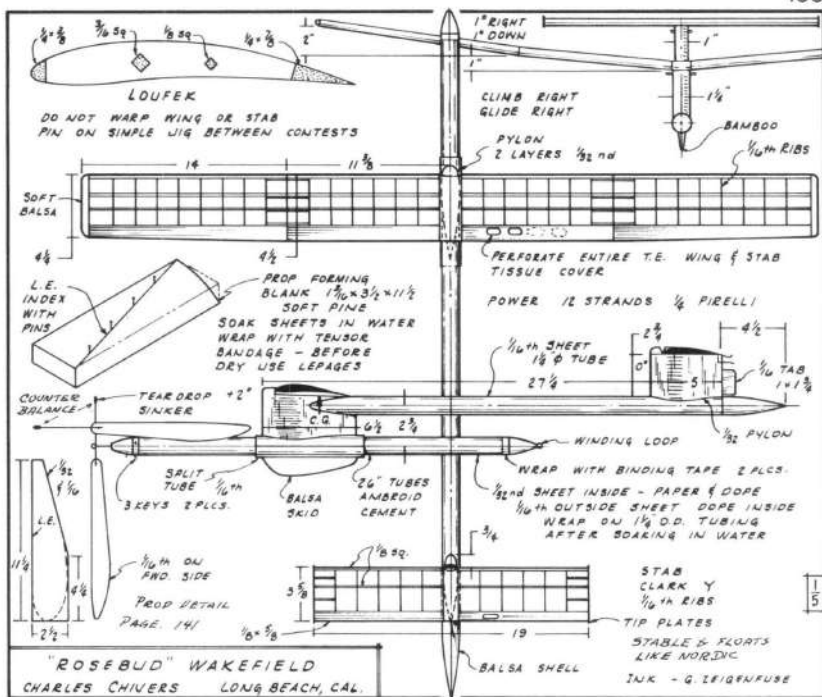 1/4 x 3/8
3/16 SQ
1/8 SQ
1/4 x 7/8
LOUFEK
DO NOT WARP WING OR STAB
PIN ON SIMPLE JIG BETWEEN CONTESTS
2"
1° RIGHT
1° DOWN
1"
1"
1 1/4"
CLIMB RIGHT
GLIDE RIGHT
BAMBOO
14
11 3/8
PYLON
2 LAYERS 1/32 nd
1/16th RIBS
SOFT
BALSA
4 1/4
4 1/2
PERFORATE ENTIRE T.E. WING & STAB
TISSUE COVER
L.E.
INDEX
WITH
PINS
PROP FORMING
BLANK 1 3/16 x 3 1/2 x 11 1/2
SOFT PINE
SOAK SHEETS IN WATER
WRAP WITH TENSOR
BANDAGE - BEFORE
DRY USE LEPAGES
POWER 12 STRANDS 1/4 PIRELLI
1/16th SHEET
1 1/4 Φ TUBE
27 1/4
2 3/4
4 1/2
0°
5
1/16 TAB
1 x 1 3/4
1/32 PYLON
COUNTER
BALANCE
TEAR DROP
SINKER
+2°
C.G.
6 1/2
2 3/4
WINDING LOOP
WRAP WITH BINDING TAPE 2 PLCS.
3 KEYS 2 PLCS.
SPLIT
TUBE 1/16th
BALSA
SKID
26" TUBES
AMBROID
CEMENT
1/32nd SHEET INSIDE - PAPER & DOPE
1/16th OUTSIDE SHEET DOPE INSIDE
WRAP ON 1 1/4 O.D. TUBING
AFTER SOAKING IN WATER
1/32
& 1/16
L.E.
11 1/4
4 1/4
2 1/2
1/16th ON
FWD. SIDE
PROP DETAIL
PAGE. 141
3/4
1/8 SQ.
3 5/8
1/8 x 5/8
19
STAB
CLARK Y
1/16th RIBS
TIP PLATES
STABLE & FLOATS
LIKE NORDIC
BALSA SHELL
INK - G. ZEIGENFUSE
1/5
"ROSEBUD" WAKEFIELD
CHARLES CHIVERS LONG BEACH, CAL.